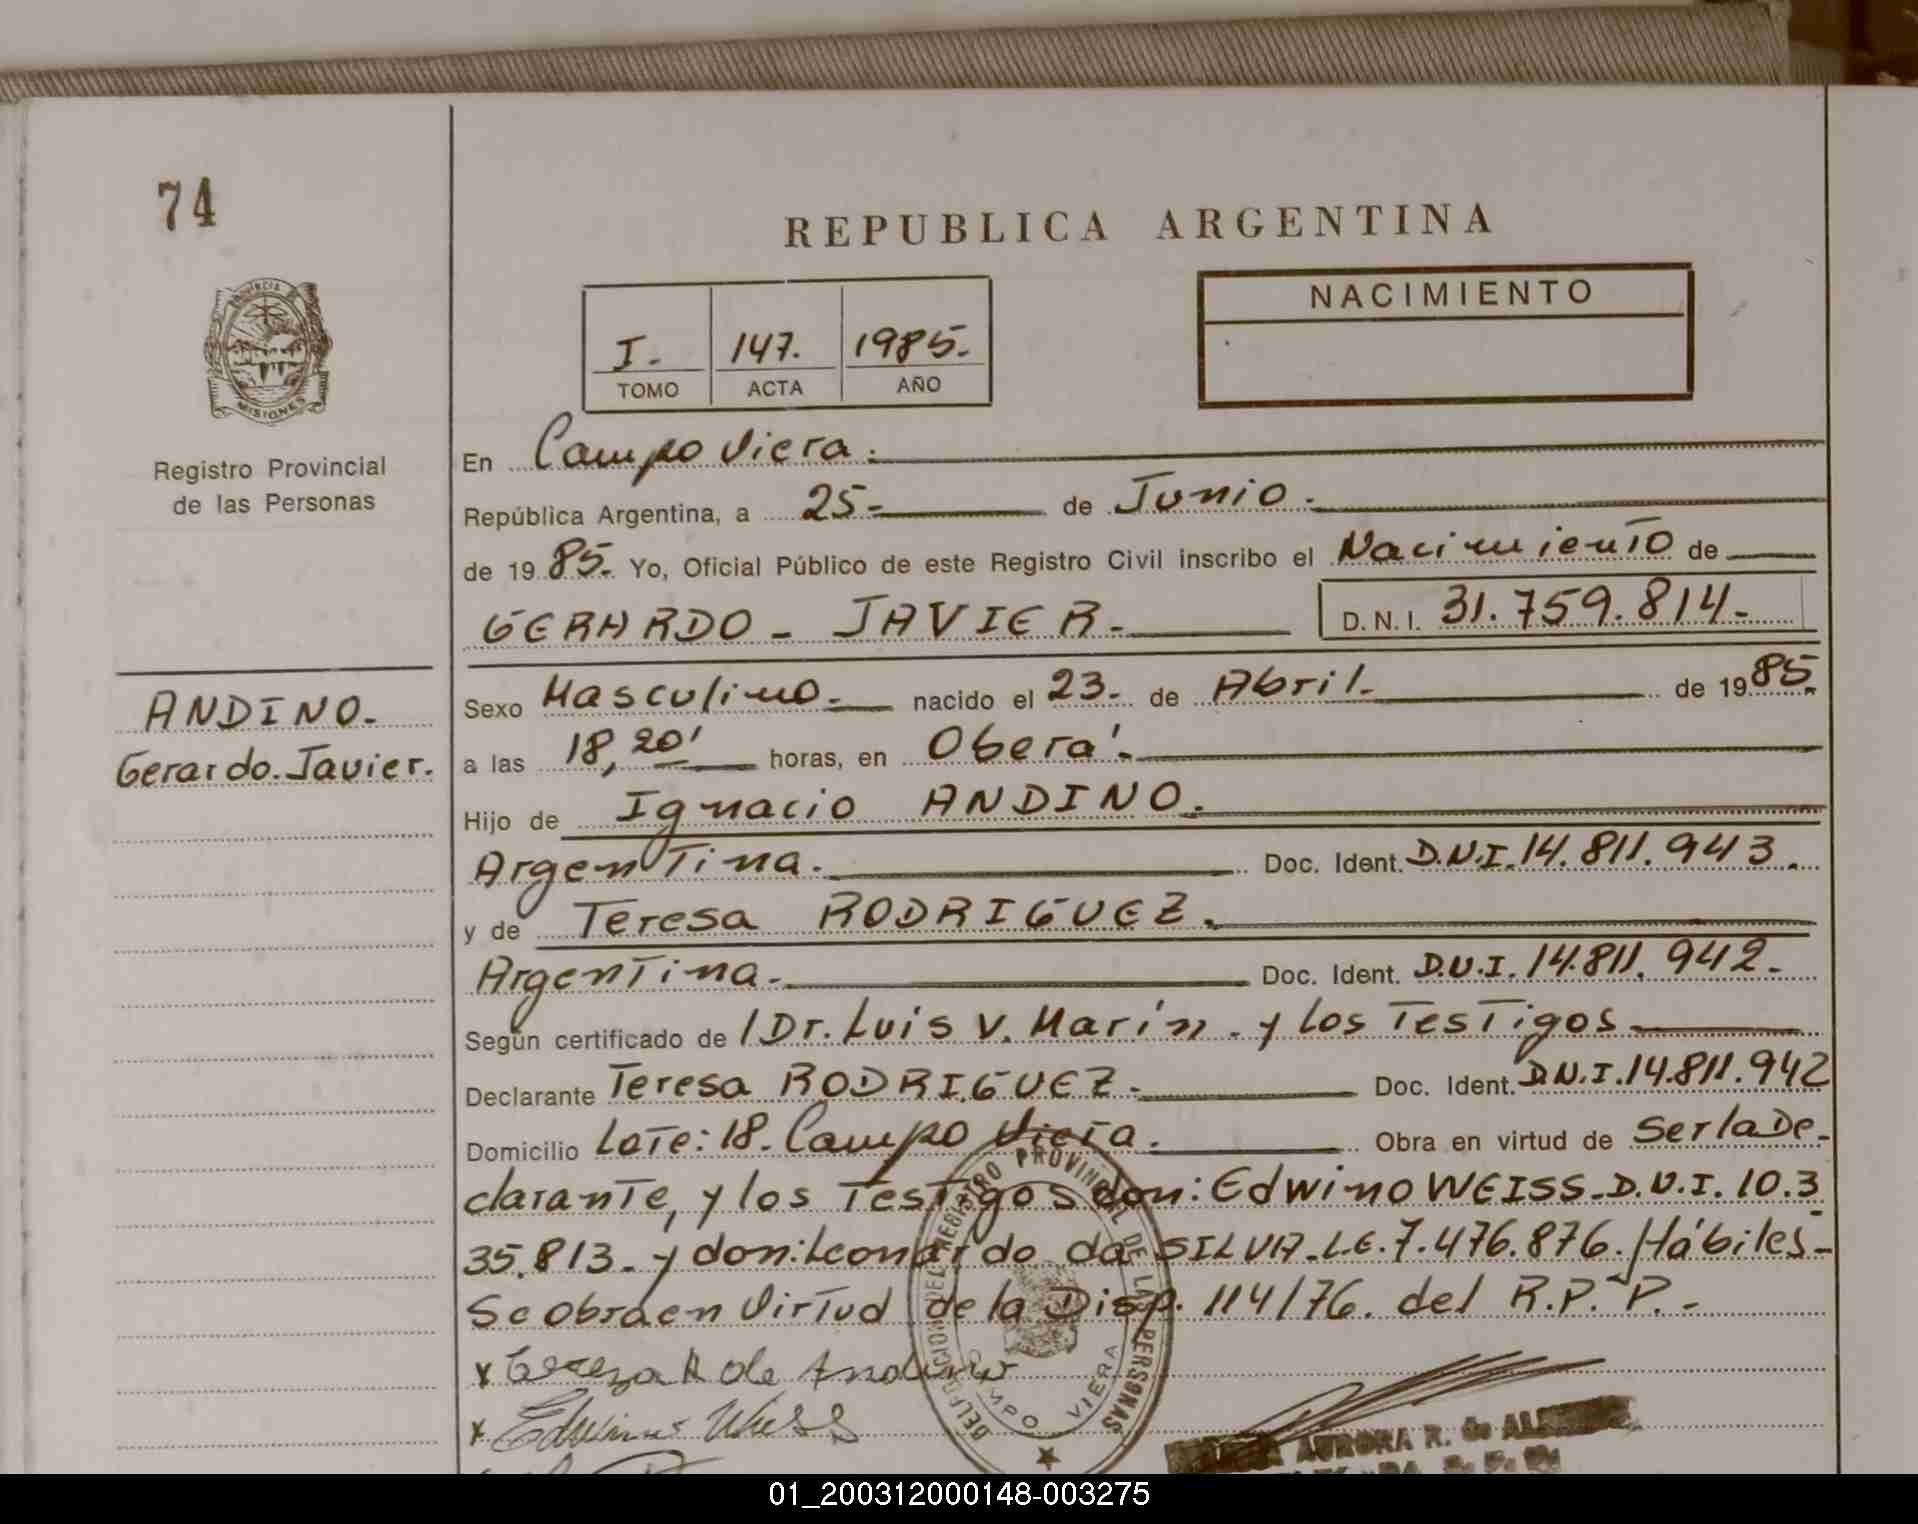 74
REPUBLICA ARGENTINA
PROVINCIA DE
MISIONES
Registro Provincial
de las Personas
I.- 147. 1985.-
TOMO ACTA AÑO
NACIMIENTO
En Campo Viera.-
República Argentina, a 25- de Junio.-
de 1985.- Yo, Oficial Público de este Registro Civil inscribo el Nacimiento de
GERARDO - JAVIER.- D.N.I. 31.759.814-
ANDINO.-
Gerardo.Javier.
Sexo Masculino.- nacido el 23.- de Abril.- de 1985.
a las 18,20' horas, en Oberá.-
Hijo de Ignacio ANDINO.-
Argentina.- Doc. Ident. D.N.I. 14.811.943.
y de Teresa RODRIGUEZ.-
Argentina.- Doc. Ident. D.N.I. 14.811.942.-
Según certificado de /Dr. Luis V. Marín.- y los Testigos-
Declarante Teresa RODRIGUEZ.- Doc. Ident. D.N.I. 14.811.942
Domicilio Lote: 18. Campo Viera.- Obra en virtud de Ser la De-
clarante, y los Testigos don: Edwino WEISS.-D.N.I. 10.3
35.813.- y don: Leonardo da SILVA.-L.E. 7.476.876. Hábiles-
Se obra en Virtud de la Disp. 114/76. del R.P.P.-
x Tereza R de Andino
x Edwino Weiss
DELEGACION DEL REGISTRO PROVINCIAL DE LAS PERSONAS
CAMPO VIERA
AURORA R. de
01_200312000148-003275